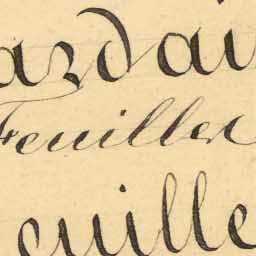 ardai
Feuilles
euille